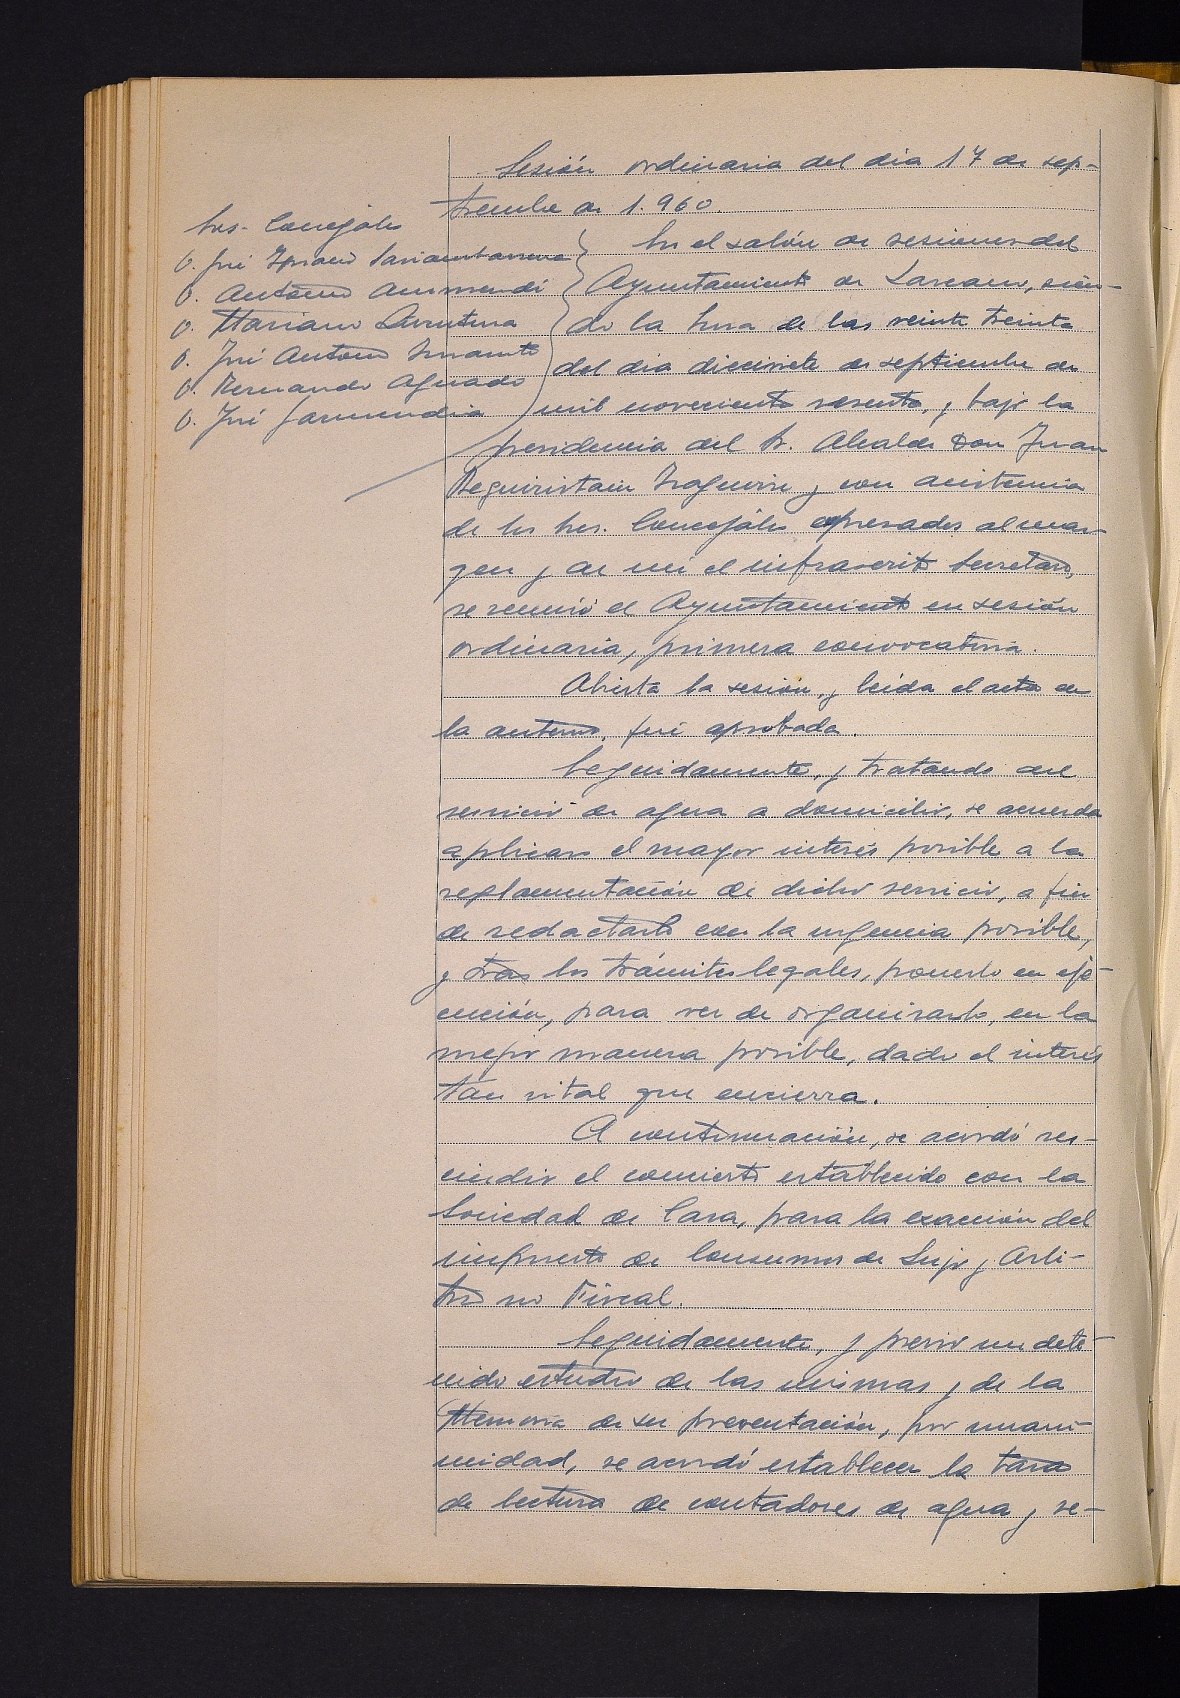 Sesión ordinaria del dia 17 de sep-
tiembre de 1.960.
Sres. Concejales
D. José Ignacio
D. Antonio Aurmendi
D. Mariano Aventura
D. José Antonio
D. Bernardo Aguado
D. José Garmendia
En el salón de sesiones del
Ayuntamiento de Larcaun, sien-
do la hora de las veinte treinta
del dia diecisiete de septiembre de
mil novecientos sesenta, y bajo la
presidencia del Sr. Alcalde Don Juan
Beguiristain Izaguirre y con asistencia
de los Sres. Concejales expresados al mar-
gen y de mi el infrascrito Secretario,
se reunió el Ayuntamiento en sesión
ordinaria, primera convocatoria.
Abierta la sesión, y leída el acta de
la anterior, fué aprobada.
Seguidamente, y tratando del
servicio de agua a domicilio, se acuerda
aplicar el mayor interés posible a la
reglamentación de dicho servicio, a fin
de redactarlo con la urgencia posible,
y tras los trámites legales, ponerlo en eje-
cución, para ver de organizarlo, en la
mejor manera posible, dado el interés
tan vital que encierra.
A continuación, se acordó res-
cindir el concierto establecido con la
Sociedad de Caza, para la exacción del
impuesto de Consumos de Lujo y Arbi-
trio no Fiscal.
Seguidamente, y previo un dete-
nido estudio de las mismas y de la
Memoria de su presentación, por unani-
midad, se acordó establecer la tasa
de lectura de contadores de agua y se-